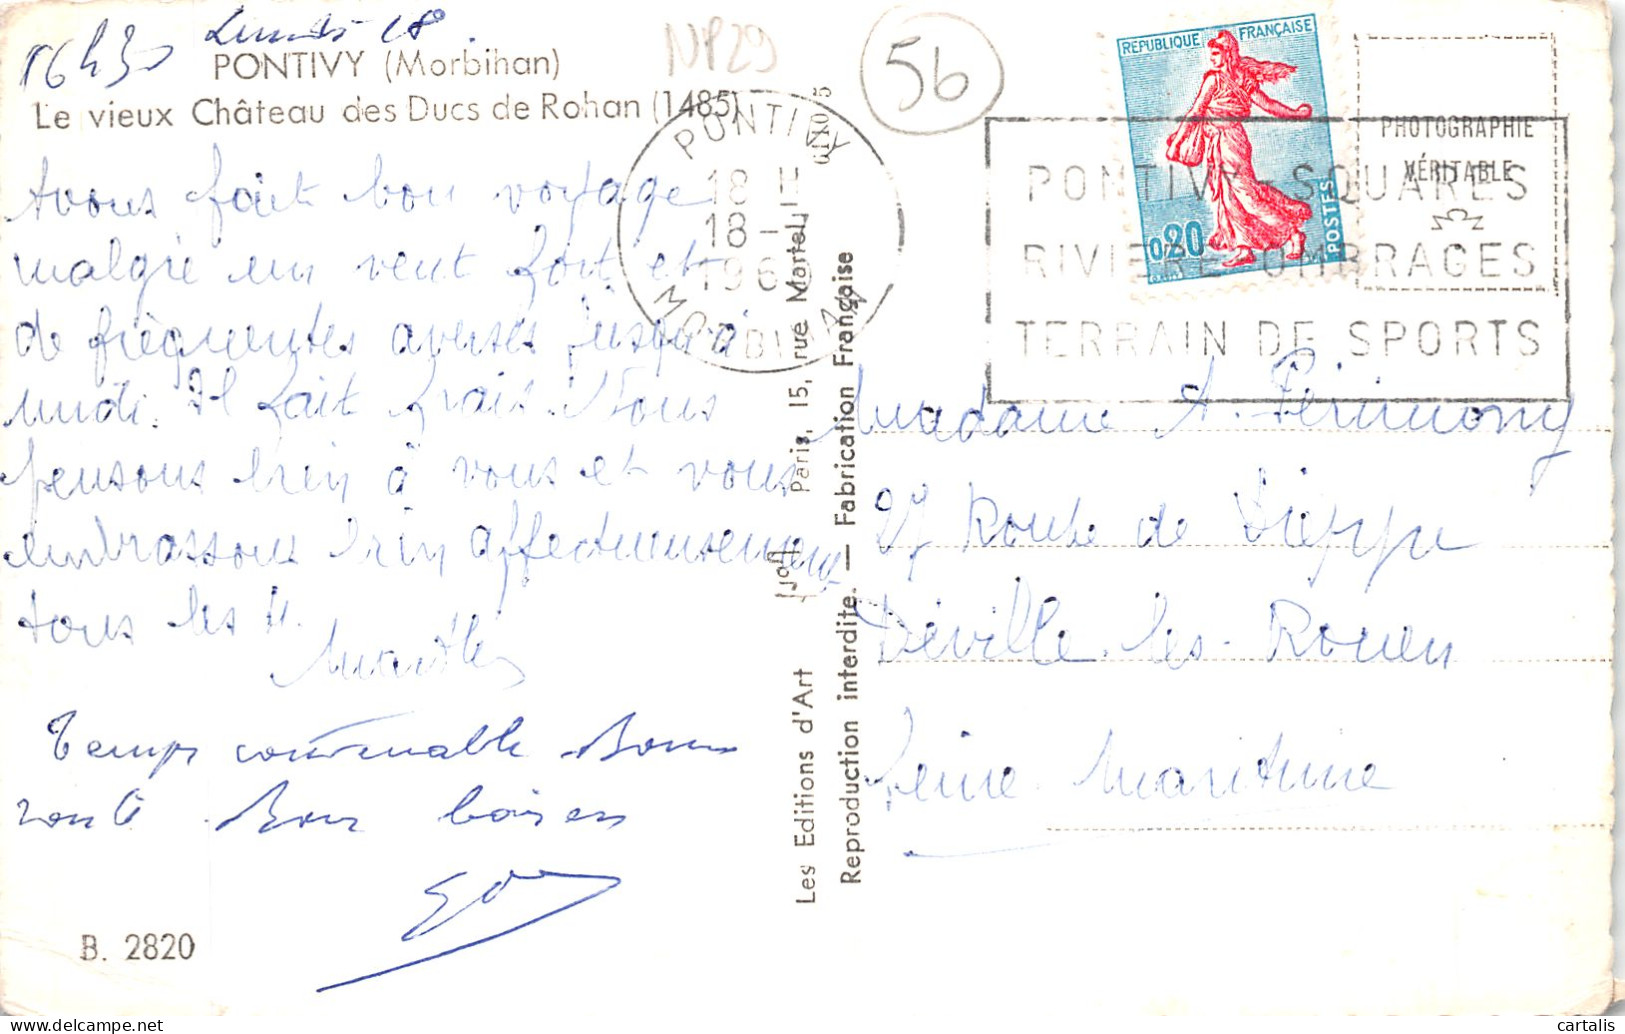 16h30 Lundi 18.
PONTIVY (Morbihan)
Le vieux Château des Ducs de Rohan (1485)
Avons fait bon voyage
malgré un vent fort et
de fréquentes averses jusqu'à
midi. Il fait frais. Nous
pensons bien à vous et vous
embrassons bien affectueusement
tous les 4.
Temps convenable Bonne
santé Bons baisers
B. 2820
NP29
56
PONTIVY
18 H
18 -
196
MORBIHAN
Les Editions d'Art Yvon Paris, 15, rue Martel
Reproduction interdite. — Fabrication Française
REPUBLIQUE FRANÇAISE
0,20
POSTES
PHOTOGRAPHIE
VÉRITABLE
PONTIVY - SQUARES
RIVIERE OMBRAGES
TERRAIN DE SPORTS
Madame A. Périmony
97 Route de Dieppe
Déville-les-Rouen
Seine Maritime
cartalis
delcampe.net